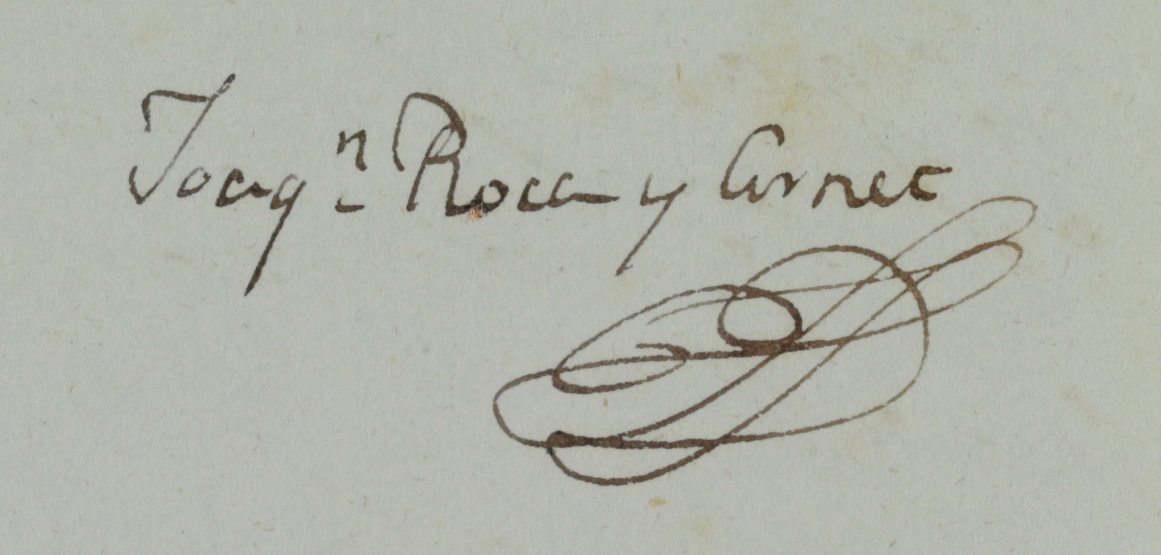 Joaqn Roca y Cornet